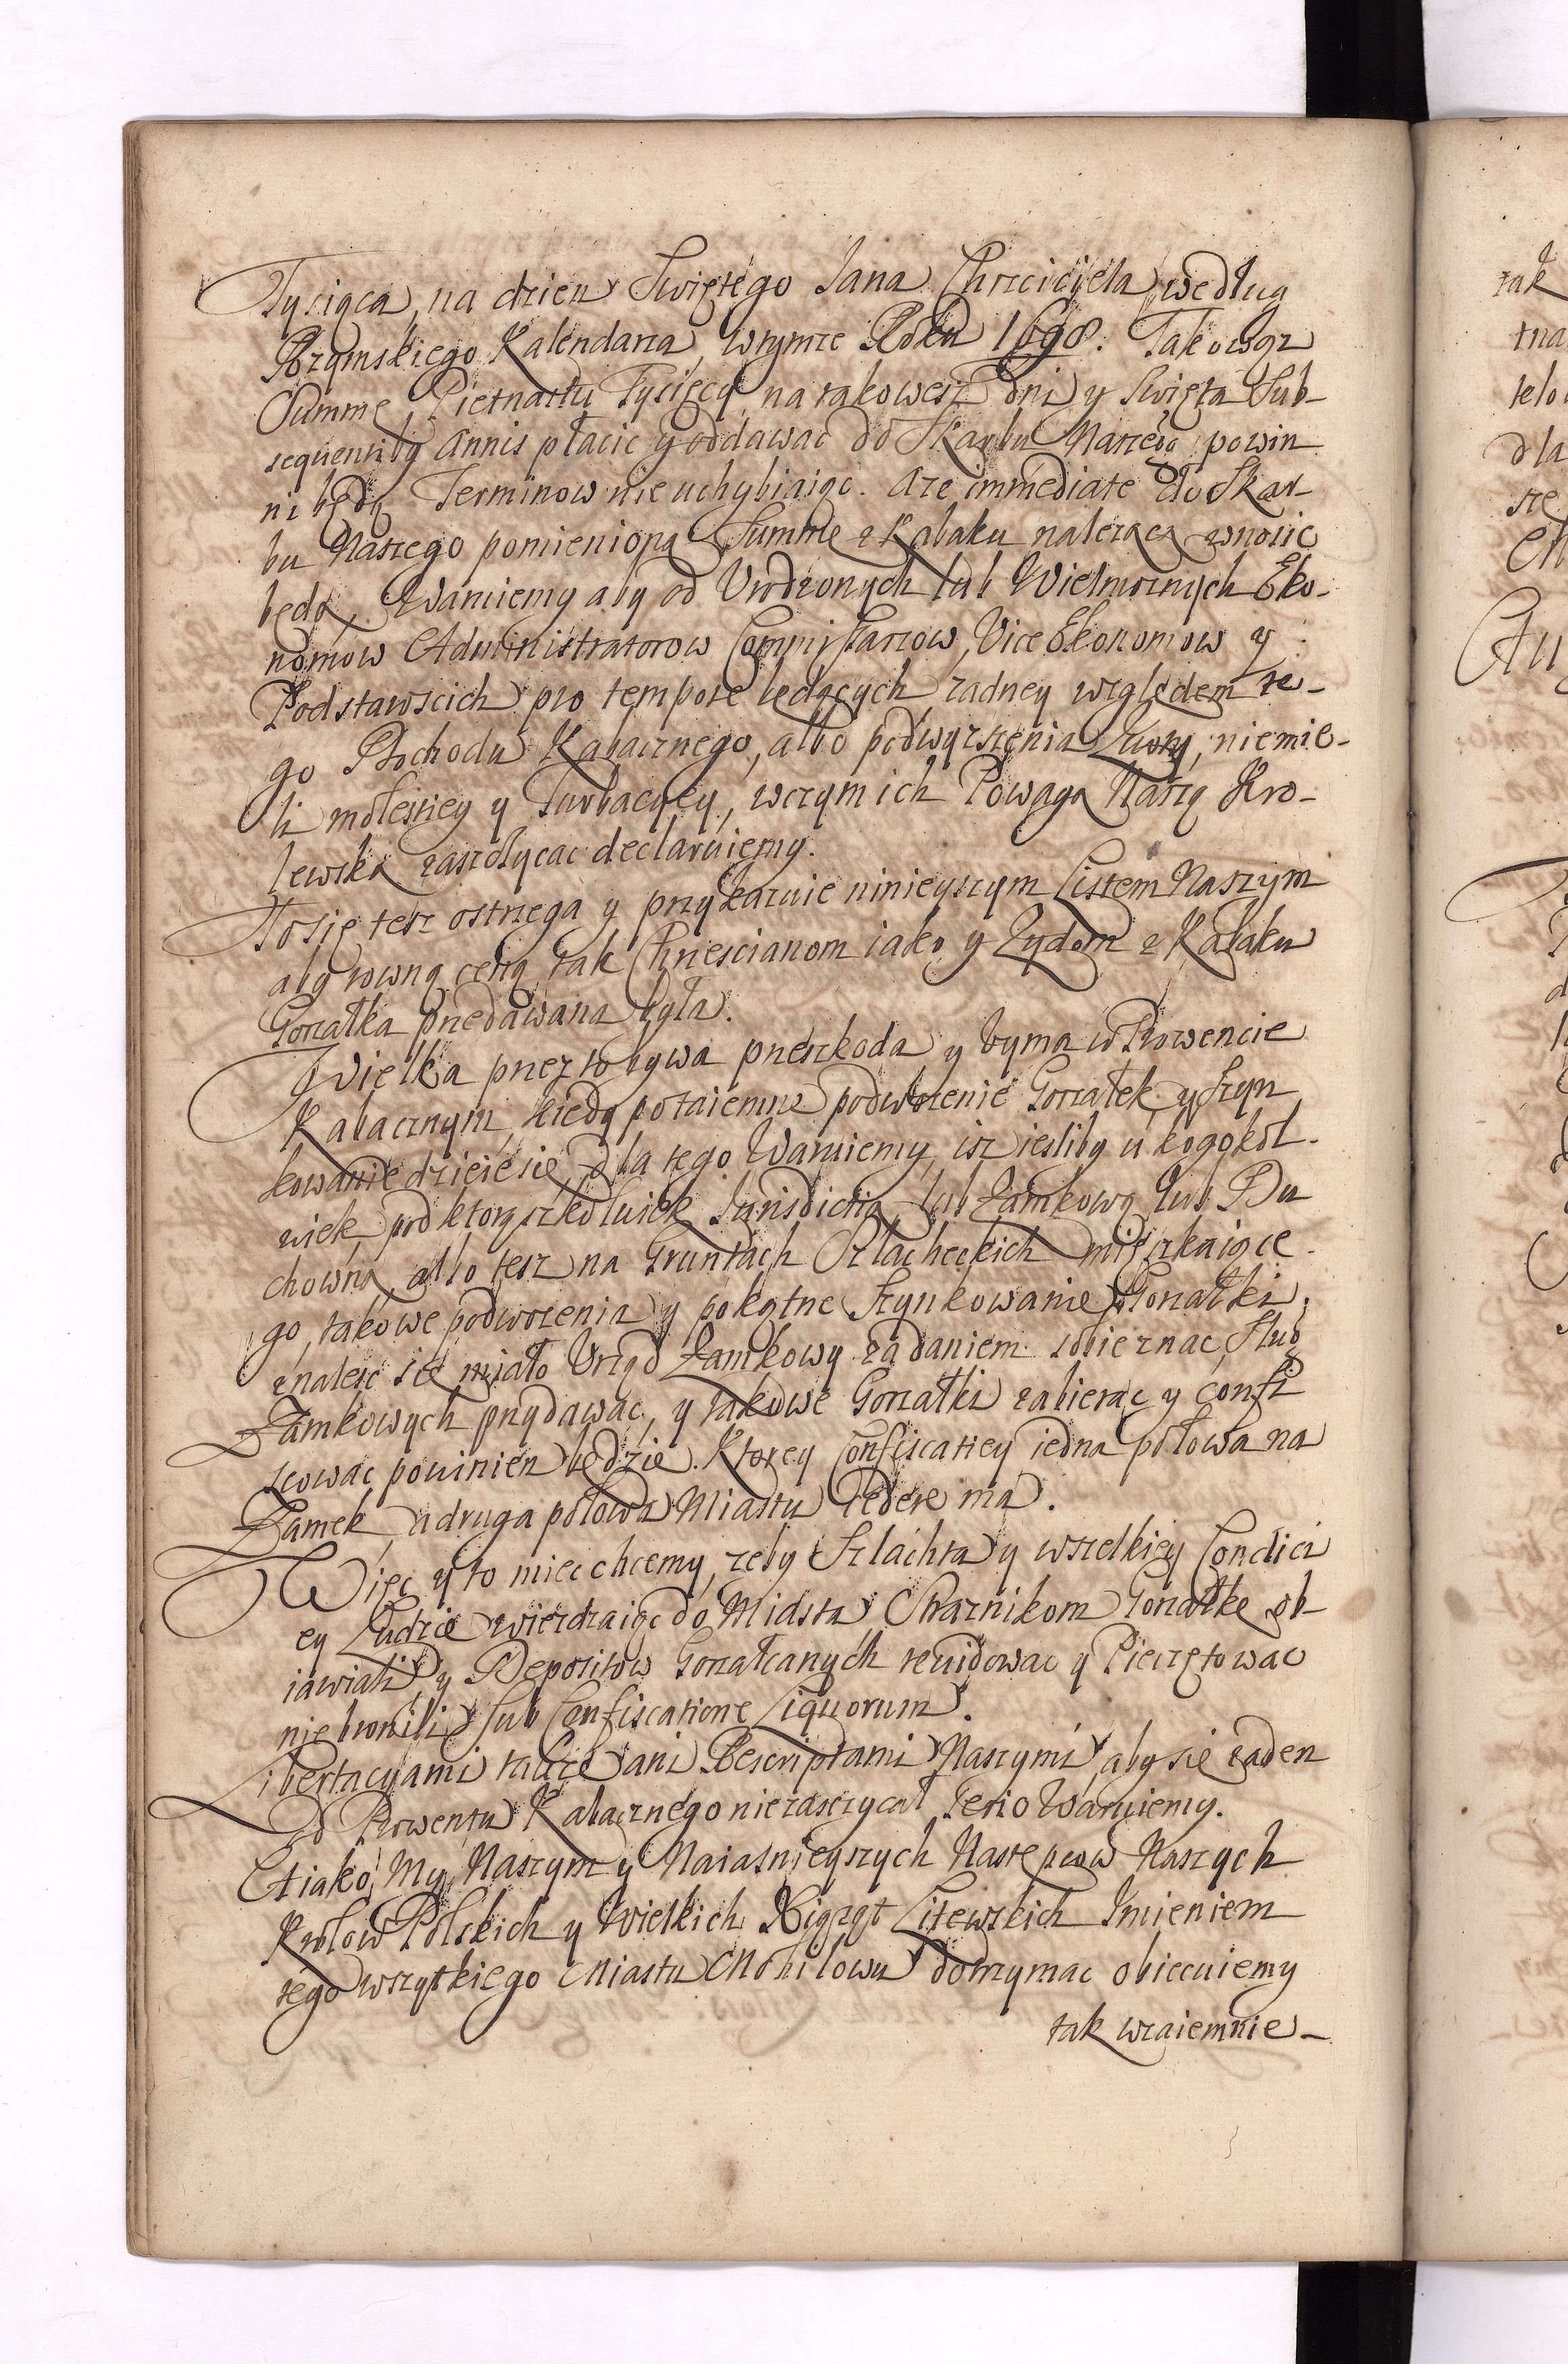 Tysiąca, na dzien Swiętego Jana Chrzciciela według
Rzymskiego Kalendarza, wtymze Roku 1698. Takowąz
Summę Pietnastu Tysięcy na takowesz dni y Swięta Sub-
sequentibg Annis płacic y oddawac do Skarbu Naszego powin
ni będą Terminow nie uchybiaiąc. Aze immediate do Skar-
bu Naszego pomienioną Summę z Kabaku nalezącą wnosic
będą. Waruiemy aby od Urodzonych lub Wielmoznych Eko-
nomow Administratorow Commissarzow, Vice Ekonomow y
Podstawscich pro tempore będących zadney względem te-
go Dochodu Kabacznego, albo podwyzszenia Kwoty, niemie-
li molestiey y Turbacyey, wczym ich Powagą Naszą Kro-
lewską zaszczycac declaruiemy.
To się tesz ostrzega y przykazuie ninieyszym Listem Naszym
aby rowną ceną tak Chrzescianom iako y Zydom z Kabaku
Gorzałka przedawana była.
Wielka przez to bywa przeszkoda y uyma w Prowencie
Kabacznym, kiedy potaiemne podwozenie Gorzałek y szyn
kowanie dzieie się, dla tego Waruiemy, isz iesliby u kogokol-
wiek pod ktorąszkolwiek Jurisdictią lub Zamkową lub Du
chowną albo tesz na Gruntach Szlacheckich mięszkaiące-
go, takowe podwozenia y pokątne Szynkowanie Gorzałki
znalesc się miało Urząd Zamkowy za daniem sobie znac, Sług
Zamkowych przydawac, y takowe Gorzałki zabierac y confi
scowac powinien będzie. Ktorey Confiscatiey iedna połowa na
Zamek, a druga połowa Miastu cedere ma.
Więc y to miec chcemy, zeby Szlachta y wszelkiey Condici
ey Ludzie wiezdzaiąc do Miasta Czarnikom Gorzałkę ob-
iawiali, y Depozitow Gorzałczanych rewidowac y Pieczętowac
nie bronili sub Confiscatione Liquorum.
Libertacyami takze ani Rescriptami Naszymi, aby się zaden
od Prowentu Kabacznego niezaszczycał, serio Waruiemy.
A iako My Naszym y Naiasnieyszych Następcow Naszych
Krolow Polskich y Wielkich Xiąząt Litewskich Imieniem
tego wszytkiego Miastu Mohilowu dotrzymac obiecuiemy
tak wzaiemnie-